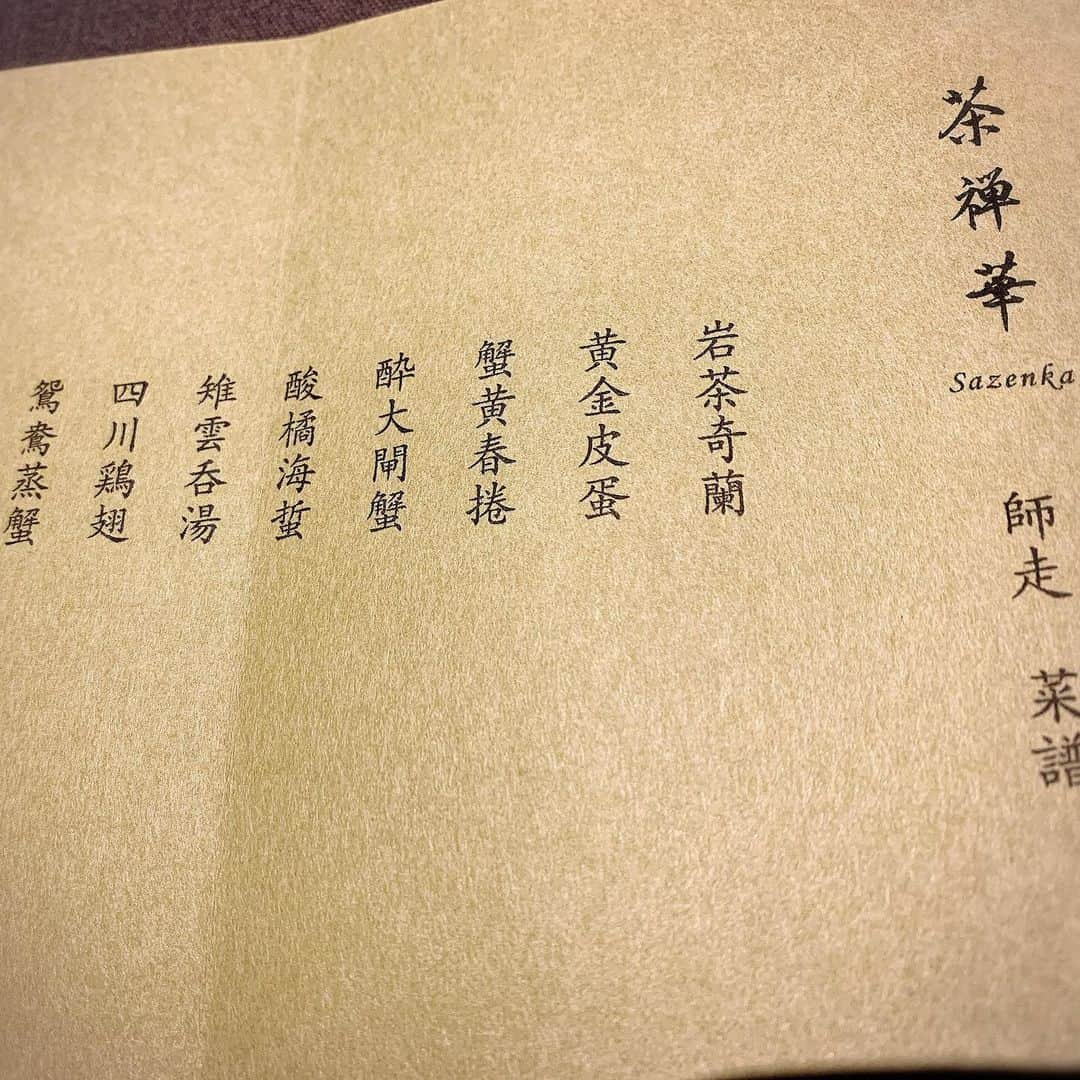 茶禅華
Sazenka
師走 菜譜
岩茶奇蘭
黄金皮蛋
蟹黄春捲
酔大閘蟹
酸橘海蜇
雉雲呑湯
四川鶏翅
鴛鴦蒸蟹